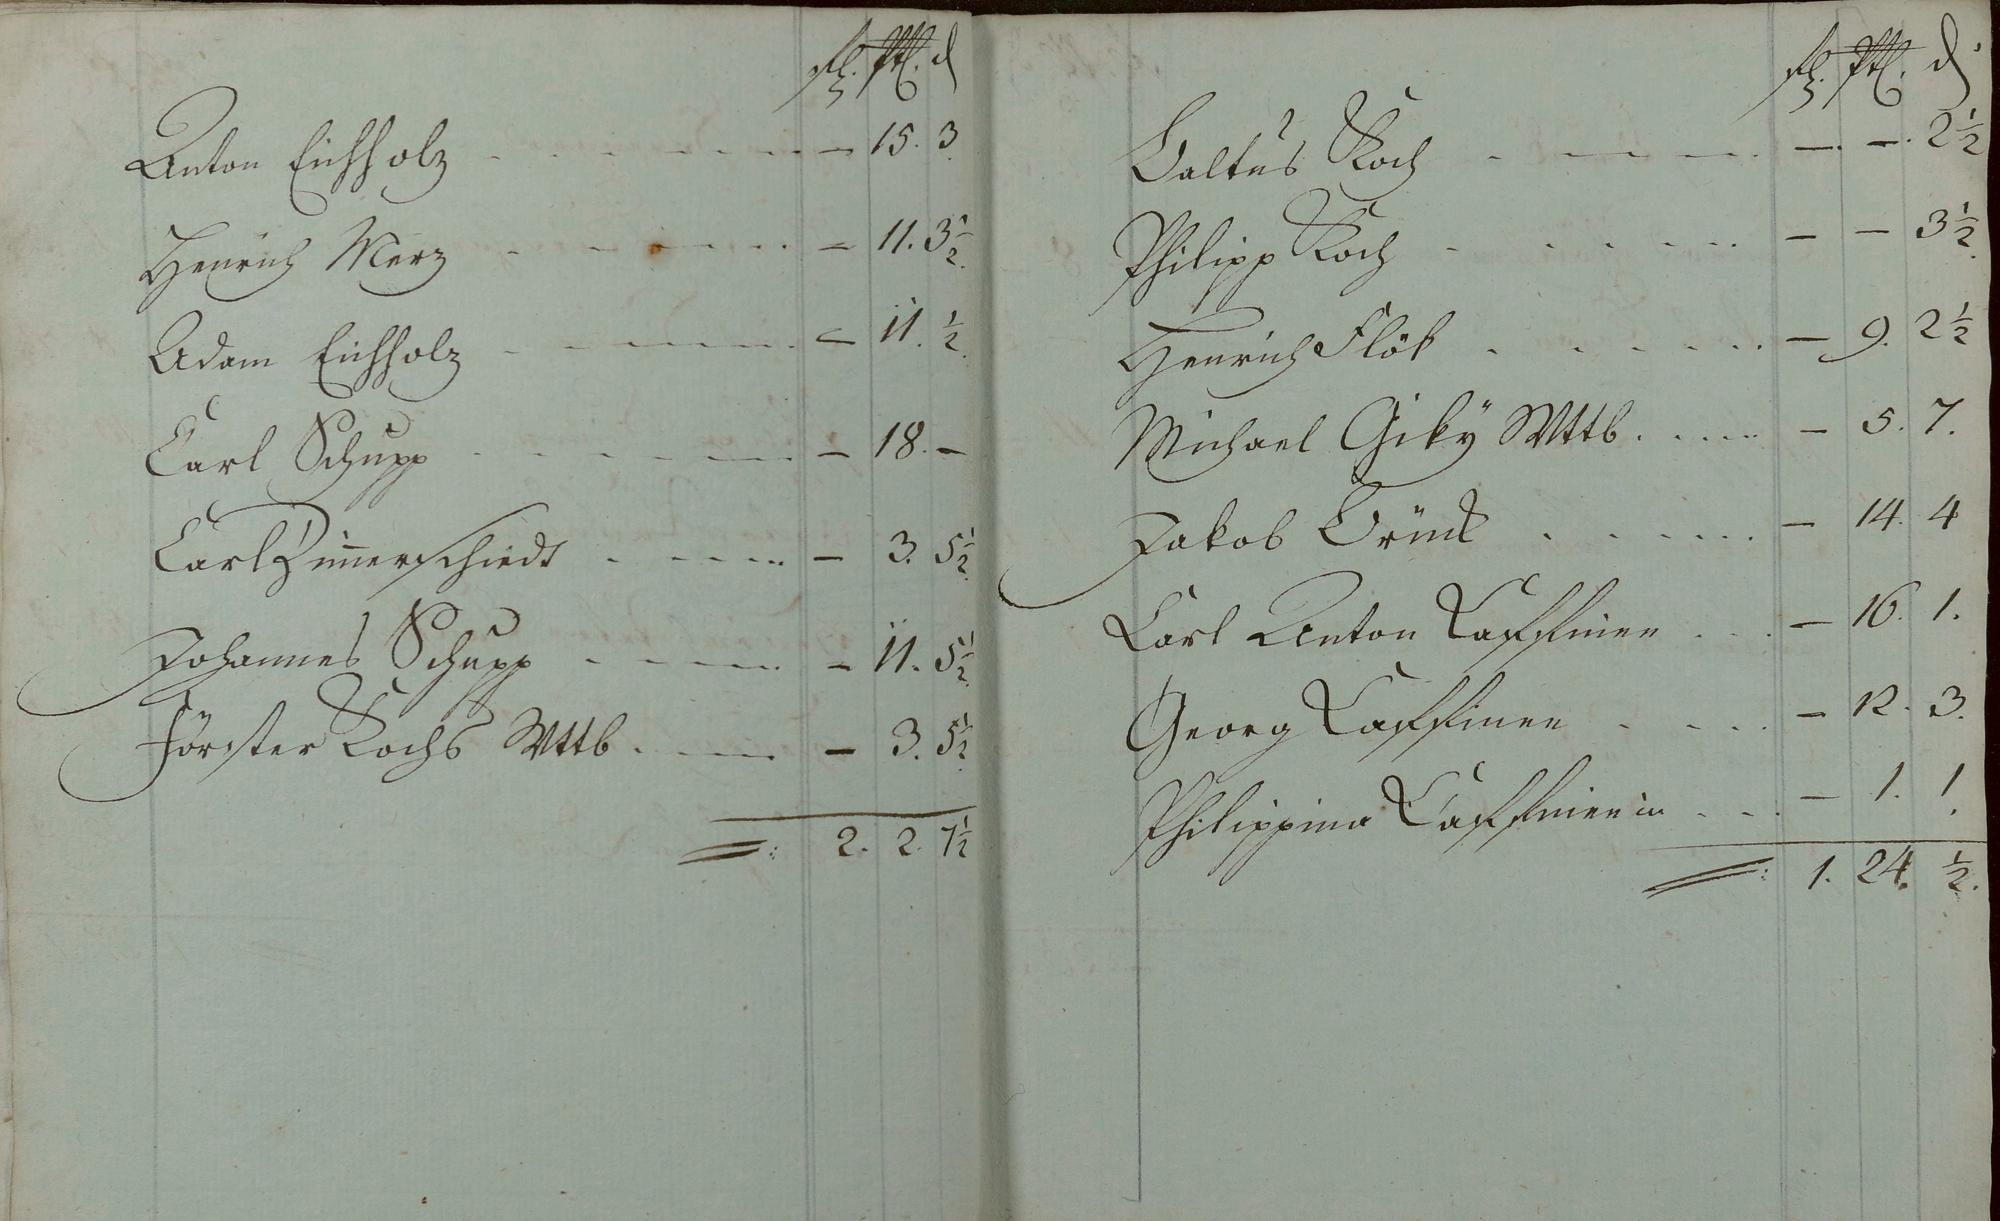 fl. Ptl. d
Anton Eichholz - - - - - - - 15. 3
Henrich Merz - - - - - - - 11. 3½.
Adam Eichholz - - - - - - - 11. ½.
Carl Schupp - - - - - - - 18. -
Carl Zimerschiedt - - - - - - 3. 5½.
Johannes Schupp - - - - - - 11. 5½.
Förster Kochs Wttb. - - - - - 3. 5½.
2. 2. 7½
fl. Ptl. d
Baltus Koch - - - - - - - - 2½
Philipp Koch - - - - - - - - 3½.
Henrich Flök - - - - - - - 9. 2½
Michael Giky Wttb. - - - - - 5. 7.
Jakob Brück - - - - - - 14. 4
Carl Anton - - - 16. 1.
Georg - - - - - 12. 3.
Philippina - - - 1. 1.
1. 24. ½.